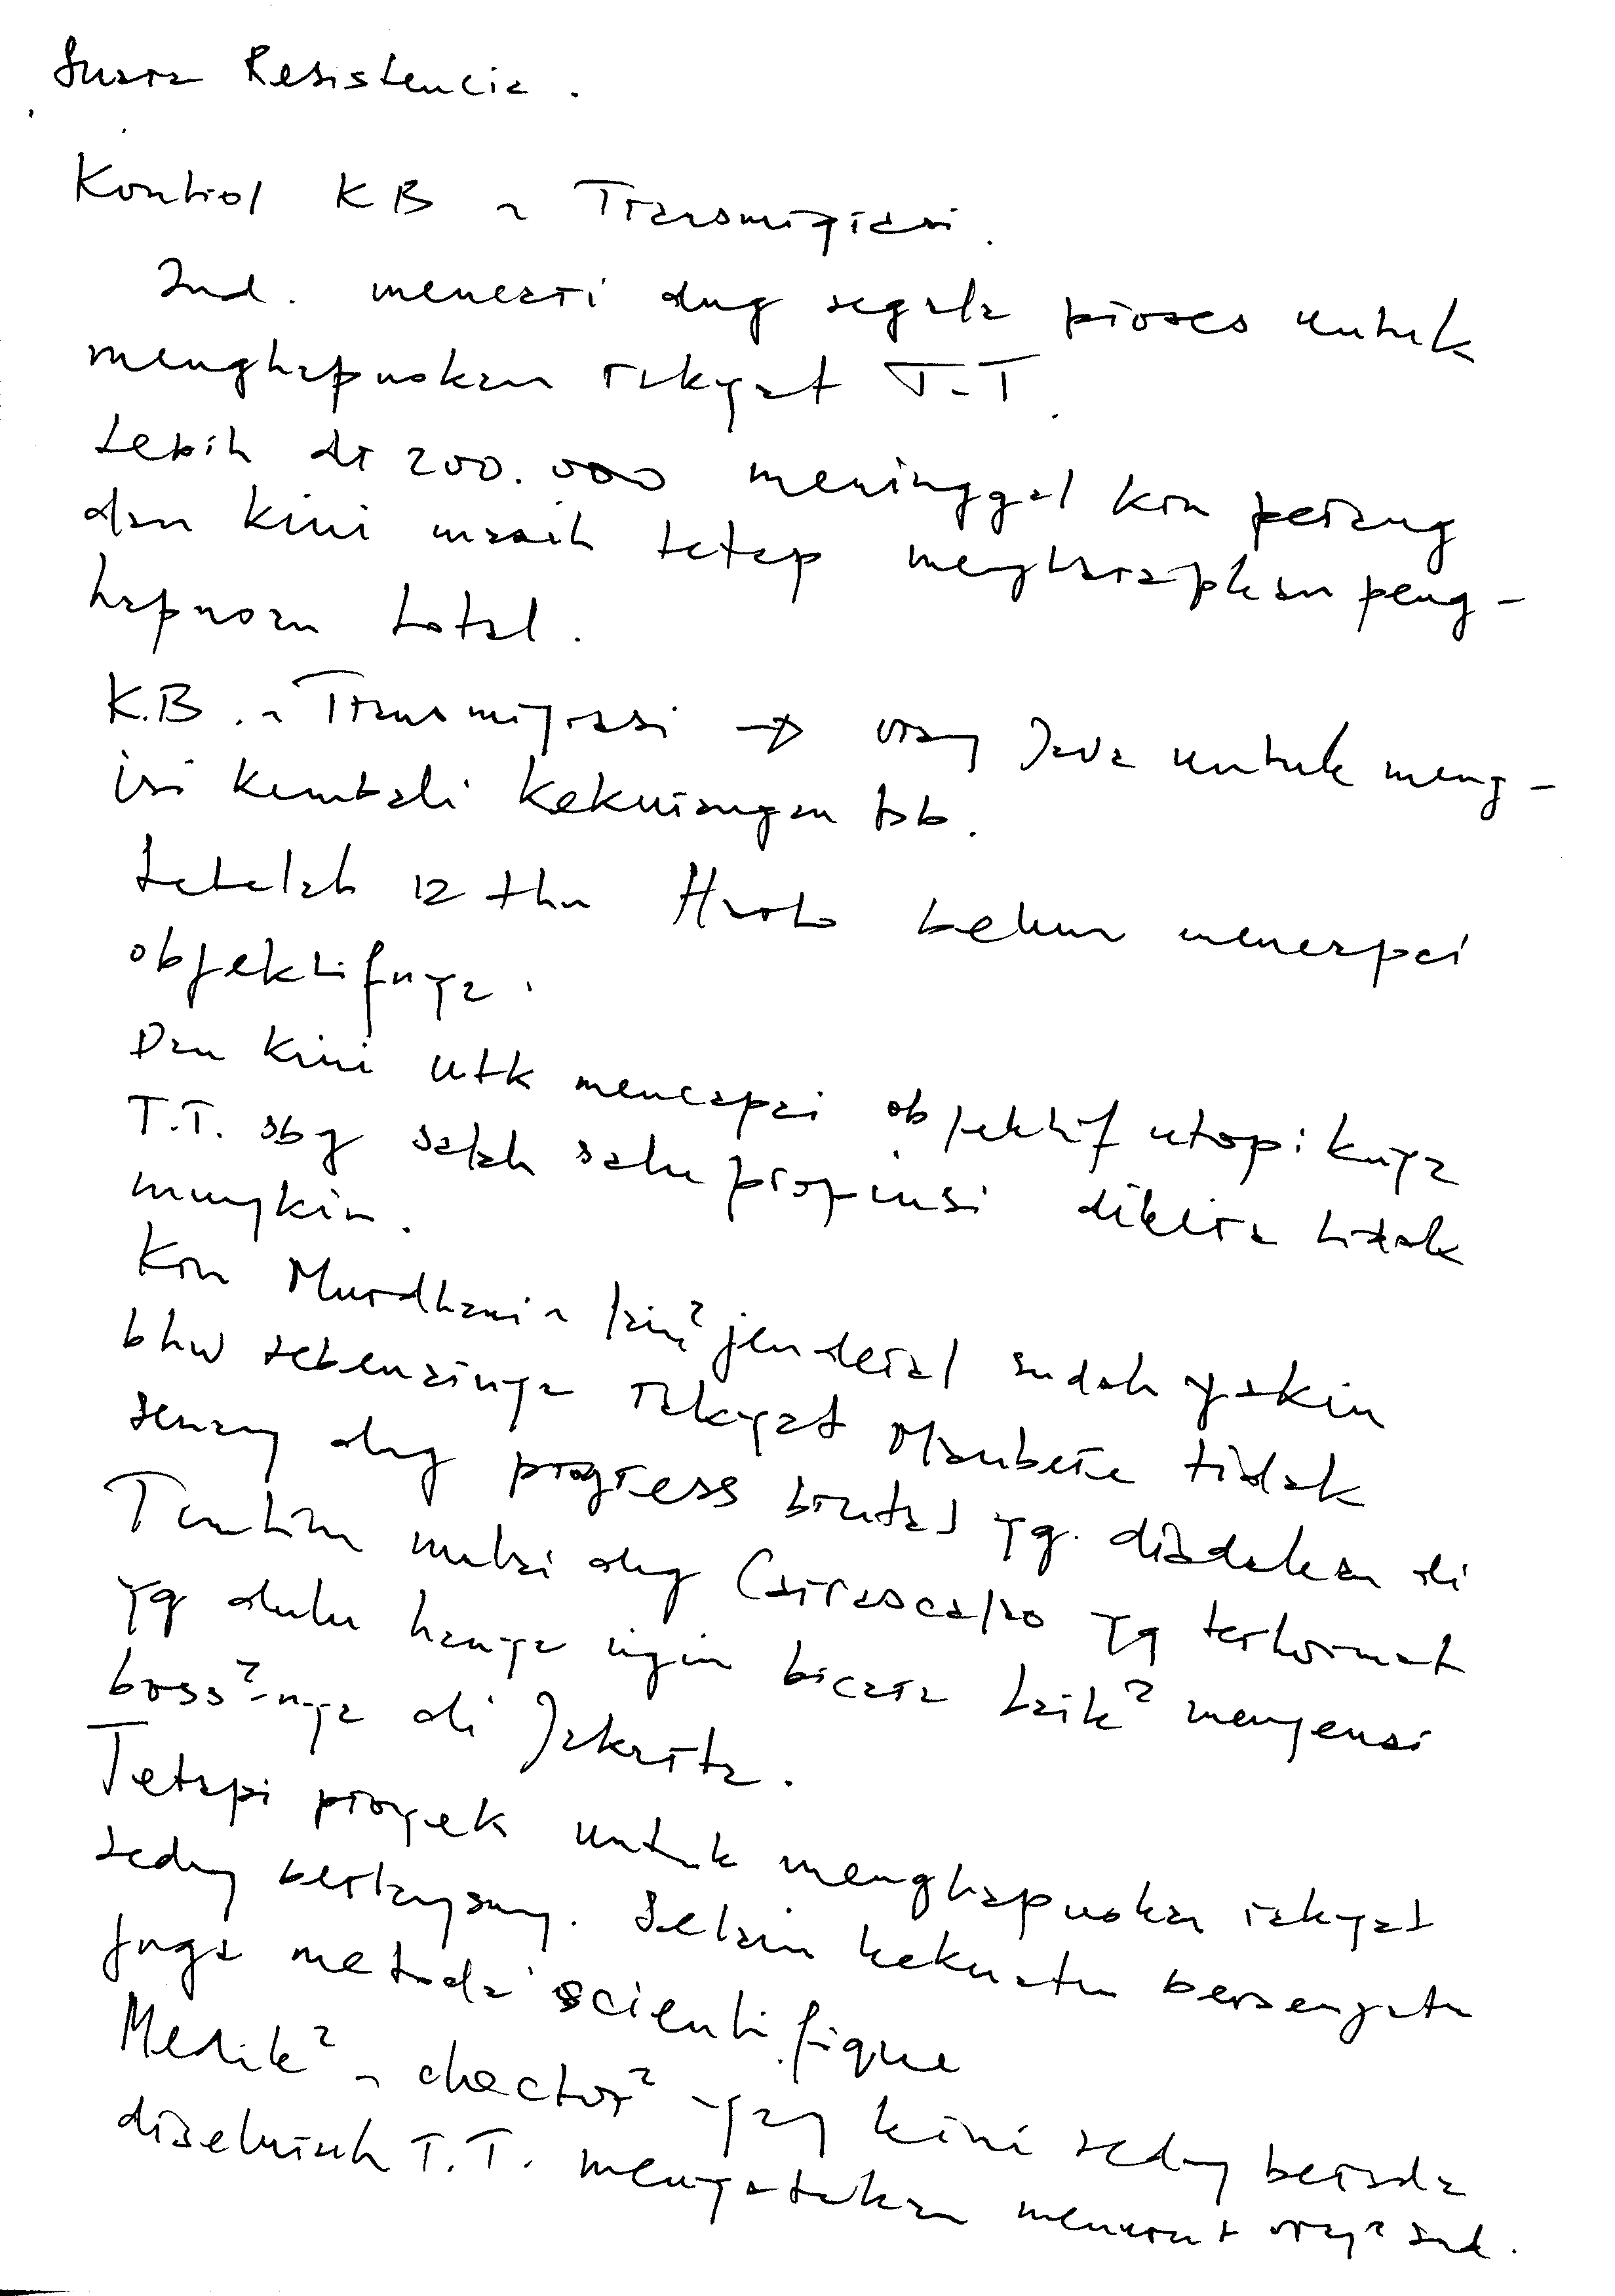 Suara Resistencia.
Kontrol KB ~ Transmigrasi.
Ind. mencari dng segala proses untuk
menghapuskan rakyat T-T.
Lebih dr 200.000 meninggal krn perang
dan kini masih tetap mengharapkan peng-
hapusan total.
K.B. ~ Transmigrasi → orang Java untuk meng-
isi kembali kekurangan tsb.
Setelah 12 thn Harto belum mencapai
objektifnya.
Dan kini utk mencapai objektif utopiknya
T.T. sbg salah satu propinsi dikira tidak
mungkin.
Krn Murdhani ~ lain² jenderal sudah yakin
bhw sebenarnya rakyat Maubere tidak
senang dng progress brutal yg. diadakan di
Timtim mulai dng Carrascalao yg terhormat
yg dulu hanya ingin bicara baik² mengenai
boss²-nya di Jakarta.
Tetapi proyek untuk menghapuskan rakyat
sedang berlangsung. Selain kekuatan bersenjata
juga metoda scientifique
Medik² ~ doctor² yang kini sedang berada
diseluruh T.T. mengatakan menurut orang² Ind.